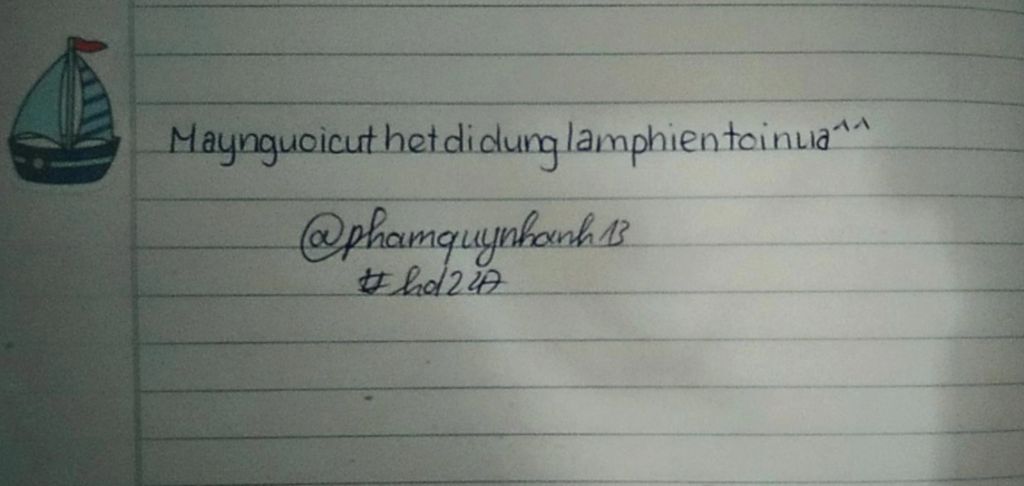 Maynguoicuthetdidunglamphientoinua^^
@phamquynhanh13
#hd247